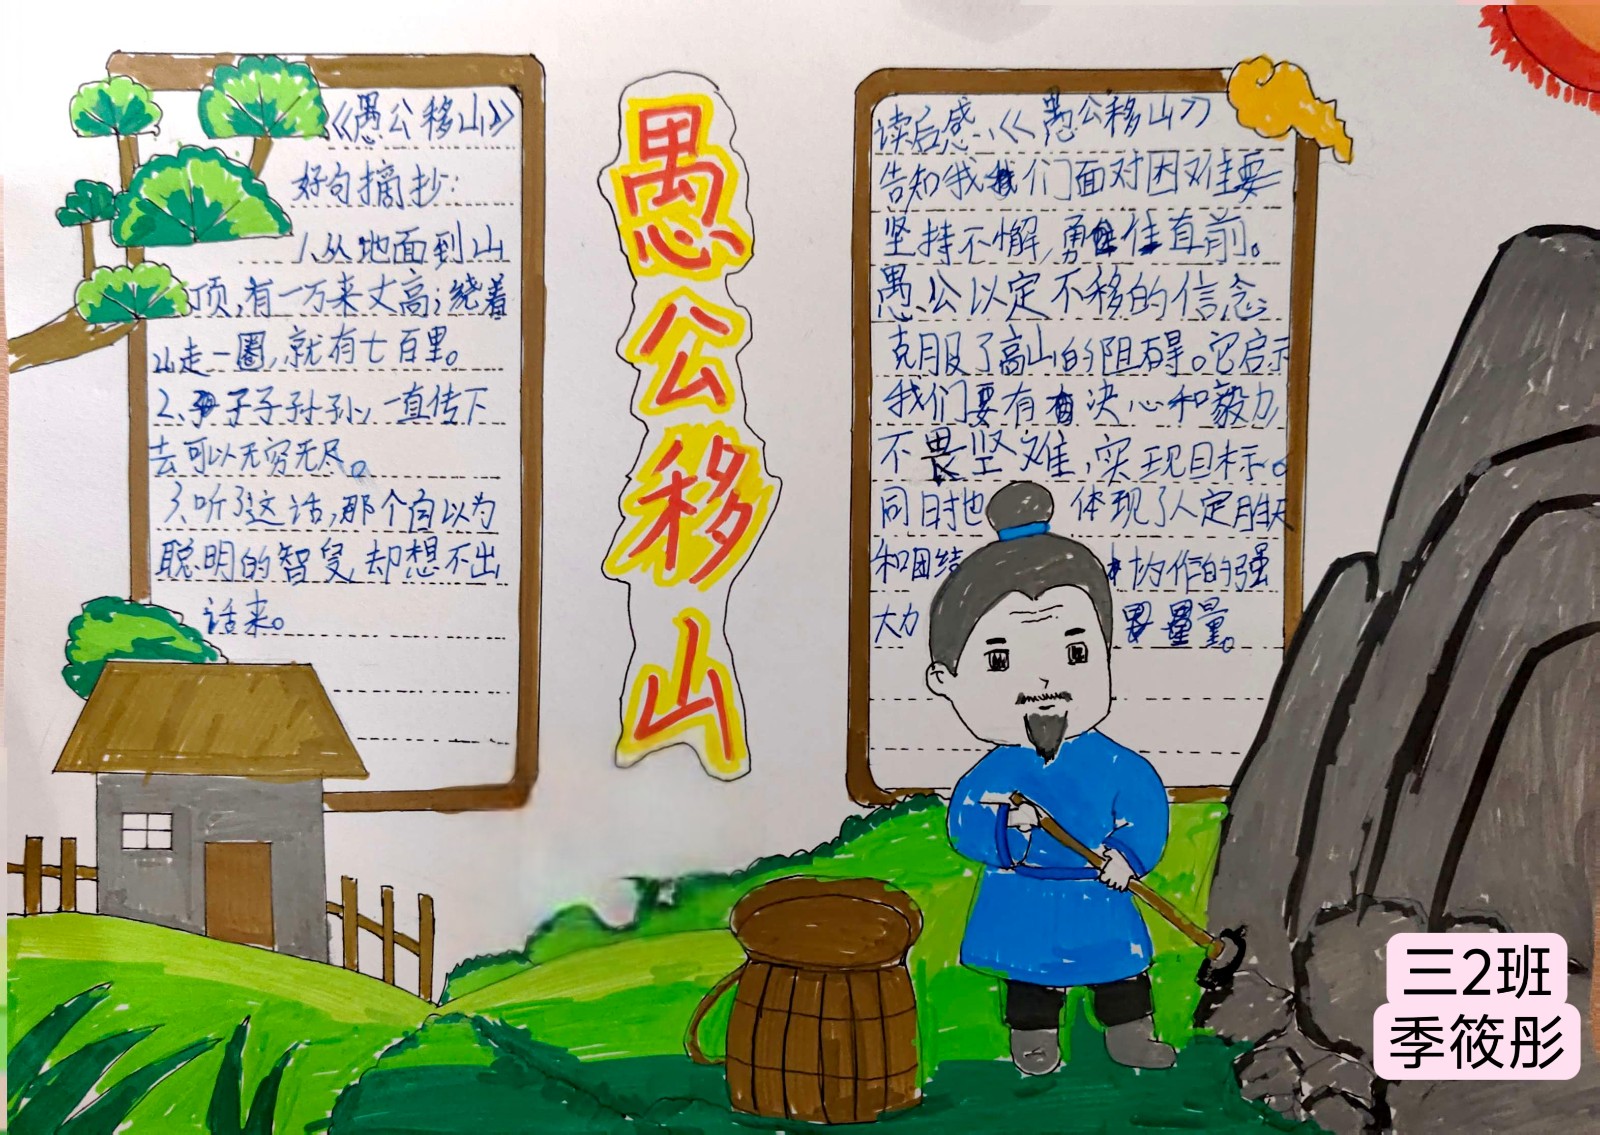 《愚公移山》
好句摘抄:
1、从地面到山
顶,有一万来丈高;绕着
山走一圈,就有七百里。
2、子子孙孙,一直传下
去可以无穷无尽。
3、听了这话,那个自以为
聪明的智叟却想不出
话来。
愚公移山
读后感、《愚公移山》
告知我们面对因难要
坚持不懈,勇往直前。
愚公以定不移的信念
克服了高山的阻碍。它启示
我们要有决心和毅力
不畏坚难,实现目标。
同时地 体现了人定胜天
和团结 协作的强
大力 量。
三2班
季筱彤